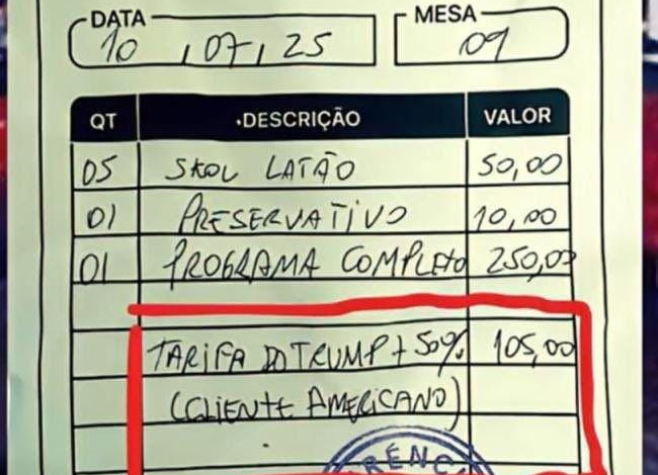 DATA MESA
10 , 07 , 25 09
QT DESCRIÇÃO VALOR
05 SKOL LATÃO 50,00
01 PRESERVATIVO 10,00
01 PROGRAMA COMPLETO 250,00
TARIFA DO TRUMP + 50% 105,00
(CLIENTE AMERICANO)
RÊNC